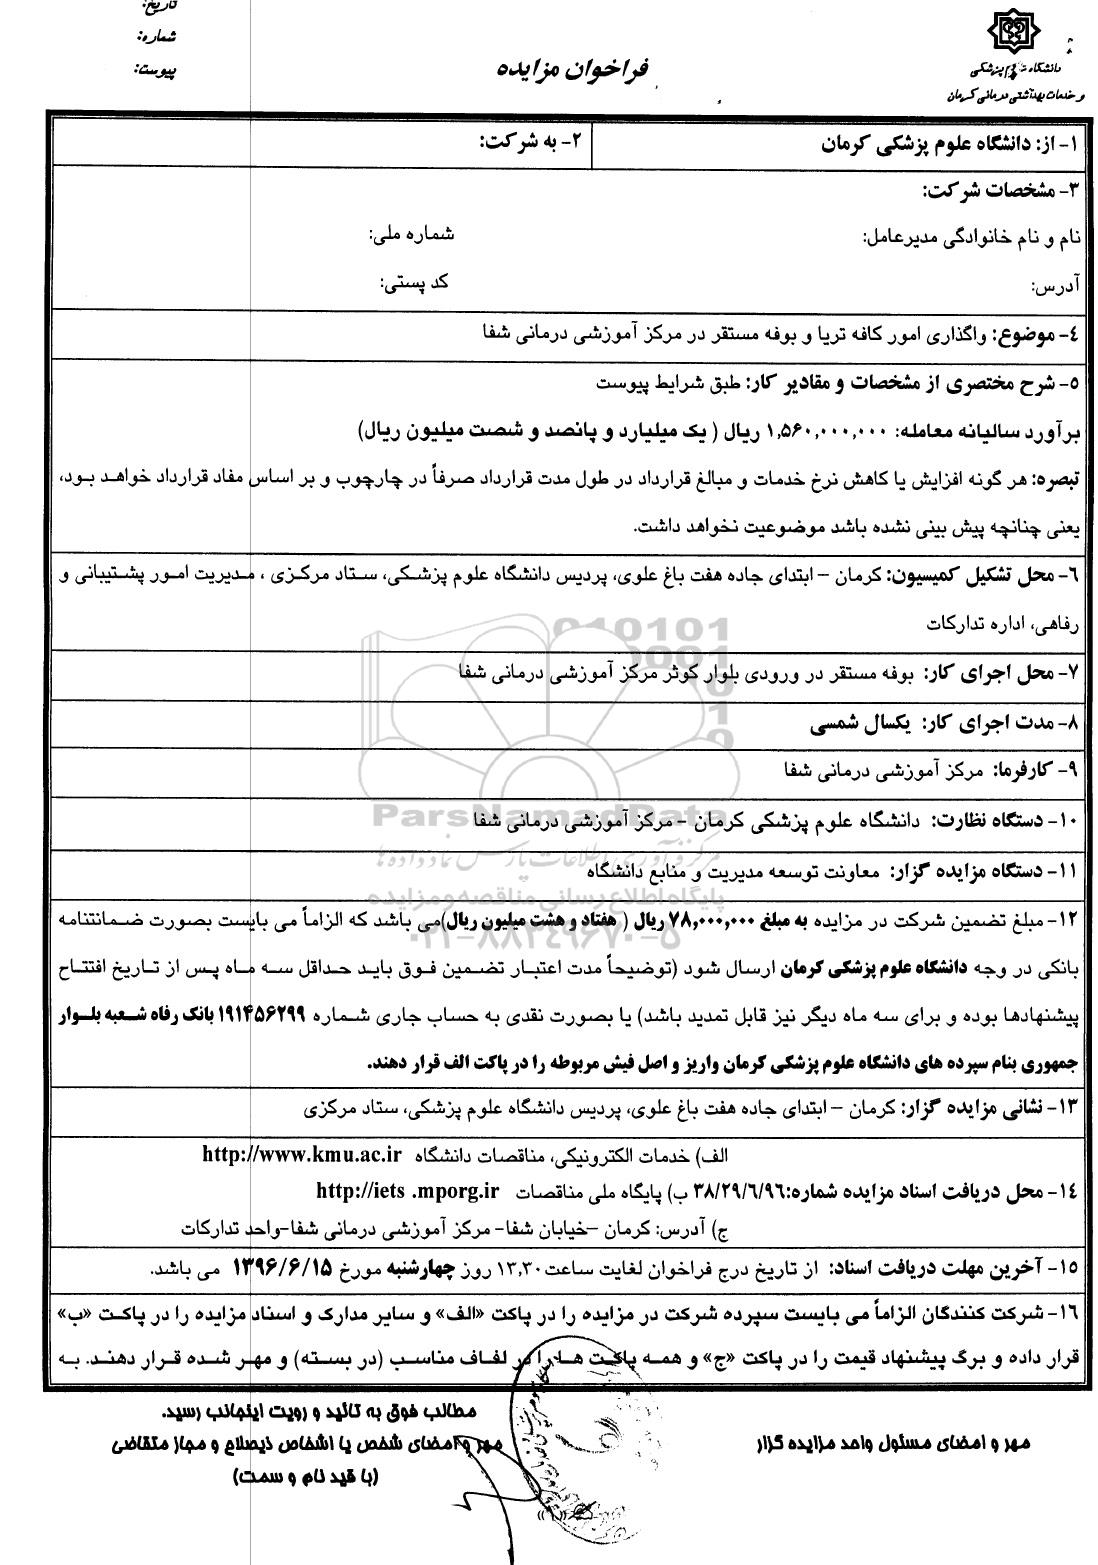 تاریخ:
شماره:
پیوست:
فراخوان مزایده
دانشگاه علوم پزشکی
و خدمات بهداشتی درمانی کرمان
۱- از: دانشگاه علوم پزشکی کرمان
۲- به شرکت:
۳- مشخصات شرکت:
نام و نام خانوادگی مدیرعامل: شماره ملی:
آدرس: کد پستی:
۴- موضوع: واگذاری امور کافه تریا و بوفه مستقر در مرکز آموزشی درمانی شفا
۵- شرح مختصری از مشخصات و مقادیر کار: طبق شرایط پیوست
برآورد سالیانه معامله: ۱,۵۶۰,۰۰۰,۰۰۰ ریال ( یک میلیارد و پانصد و شصت میلیون ریال)
تبصره: هر گونه افزایش یا کاهش نرخ خدمات و مبالغ قرارداد در طول مدت قرارداد صرفاً در چارچوب و بر اساس مفاد قرارداد خواهد بود،
یعنی چنانچه پیش بینی نشده باشد موضوعیت نخواهد داشت.
۶- محل تشکیل کمیسیون: کرمان – ابتدای جاده هفت باغ علوی، پردیس دانشگاه علوم پزشکی، ستاد مرکزی ، مدیریت امور پشتیبانی و
رفاهی، اداره تدارکات
۷- محل اجرای کار: بوفه مستقر در ورودی بلوار کوثر مرکز آموزشی درمانی شفا
۸- مدت اجرای کار: یکسال شمسی
۹- کارفرما: مرکز آموزشی درمانی شفا
ParsNamadData
۱۰- دستگاه نظارت: دانشگاه علوم پزشکی کرمان - مرکز آموزشی درمانی شفا
مرکز فرآوری اطلاعات پارس نماد داده ها
۱۱- دستگاه مزایده گزار: معاونت توسعه مدیریت و منابع دانشگاه
پایگاه اطلاع رسانی مناقصه و مزایده
۱۲- مبلغ تضمین شرکت در مزایده به مبلغ ۷۸,۰۰۰,۰۰۰ ریال ( هفتاد و هشت میلیون ریال)می باشد که الزاماً می بایست بصورت ضمانتنامه
۰۲۱-۸۸۳۴۹۶۷۰-۵
بانکی در وجه دانشگاه علوم پزشکی کرمان ارسال شود (توضیحاً مدت اعتبار تضمین فوق باید حداقل سه ماه پس از تاریخ افتتاح
پیشنهادها بوده و برای سه ماه دیگر نیز قابل تمدید باشد) یا بصورت نقدی به حساب جاری شماره ۱۹۱۴۵۶۲۹۹ بانک رفاه شعبه بلوار
جمهوری بنام سپرده های دانشگاه علوم پزشکی کرمان واریز و اصل فیش مربوطه را در پاکت الف قرار دهند.
۱۳- نشانی مزایده گزار: کرمان – ابتدای جاده هفت باغ علوی، پردیس دانشگاه علوم پزشکی، ستاد مرکزی
الف) خدمات الکترونیکی، مناقصات دانشگاه http://www.kmu.ac.ir
۱۴- محل دریافت اسناد مزایده شماره:۳۸/۲۹/۶/۹۶ ب) پایگاه ملی مناقصات http://iets .mporg.ir
ج) آدرس: کرمان –خیابان شفا- مرکز آموزشی درمانی شفا-واحد تدارکات
۱۵- آخرین مهلت دریافت اسناد: از تاریخ درج فراخوان لغایت ساعت۱۳,۳۰ روز چهارشنبه مورخ ۱۳۹۶/۶/۱۵ می باشد.
۱۶- شرکت کنندگان الزاماً می بایست سپرده شرکت در مزایده را در پاکت «الف» و سایر مدارک و اسناد مزایده را در پاکت «ب»
قرار داده و برگ پیشنهاد قیمت را در پاکت «ج» و همه پاکت ها را در لفاف مناسب (در بسته) و مهر شده قرار دهند. به
مطالب فوق به تائید و رویت اینجانب رسید.
مهر و امضای مسئول واحد مزایده گزار
مهر و امضای شخص یا اشخاص ذیصلاح و مجاز متقاضی
(با قید نام و سمت)
«۱»